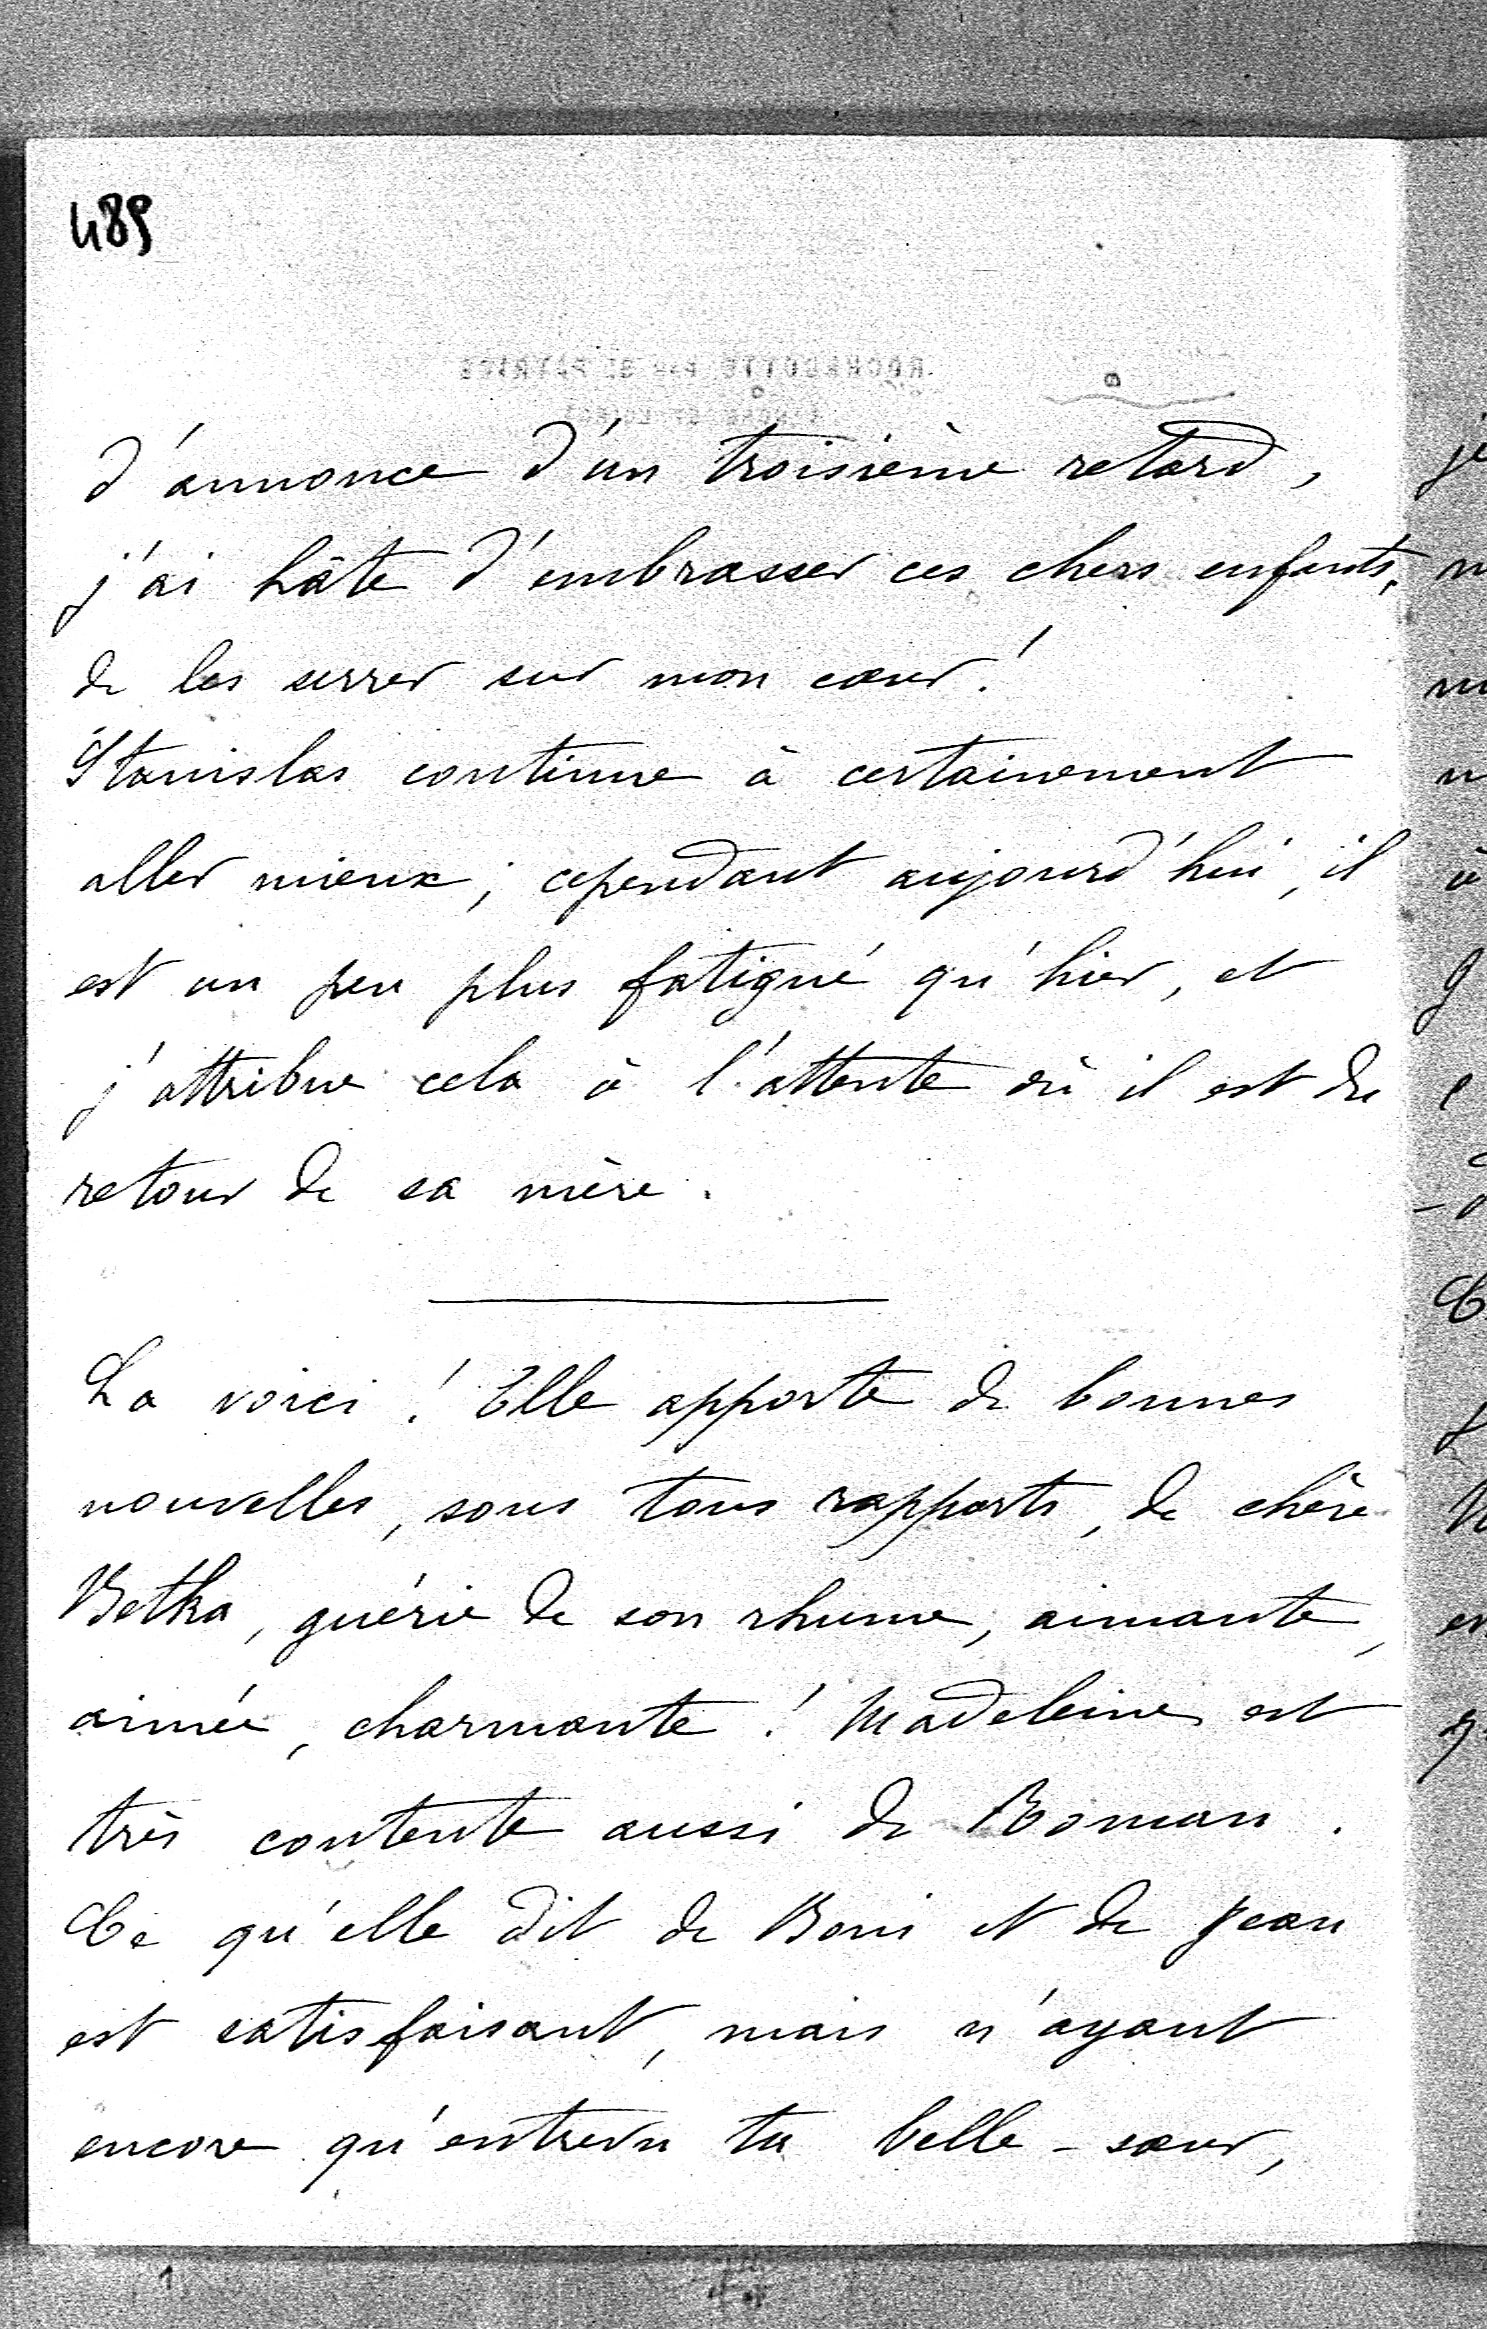 489
d'annonce d'un troisième retard,
j'ai hâte d'embrasser ces chers enfants,
de les serrer sur mon cœur !
Stanislas continue à certainement
aller mieux ; cependant aujourd'hui, il
est un peu plus fatigué qu'hier, et
j'attribue cela à l'attente où il est du
retour de sa mère.
La voici ! Elle apporte de bonnes
nouvelles, sous tous rapports, de chère
Betka, guérie de son rhume, aimante,
aimée, charmante ! Madeleine est
très contente aussi de Roman.
Ce qu'elle dit de Boni et de Jean
est satisfaisant, mais n'ayant
encore qu'entrevu ta belle-sœur,